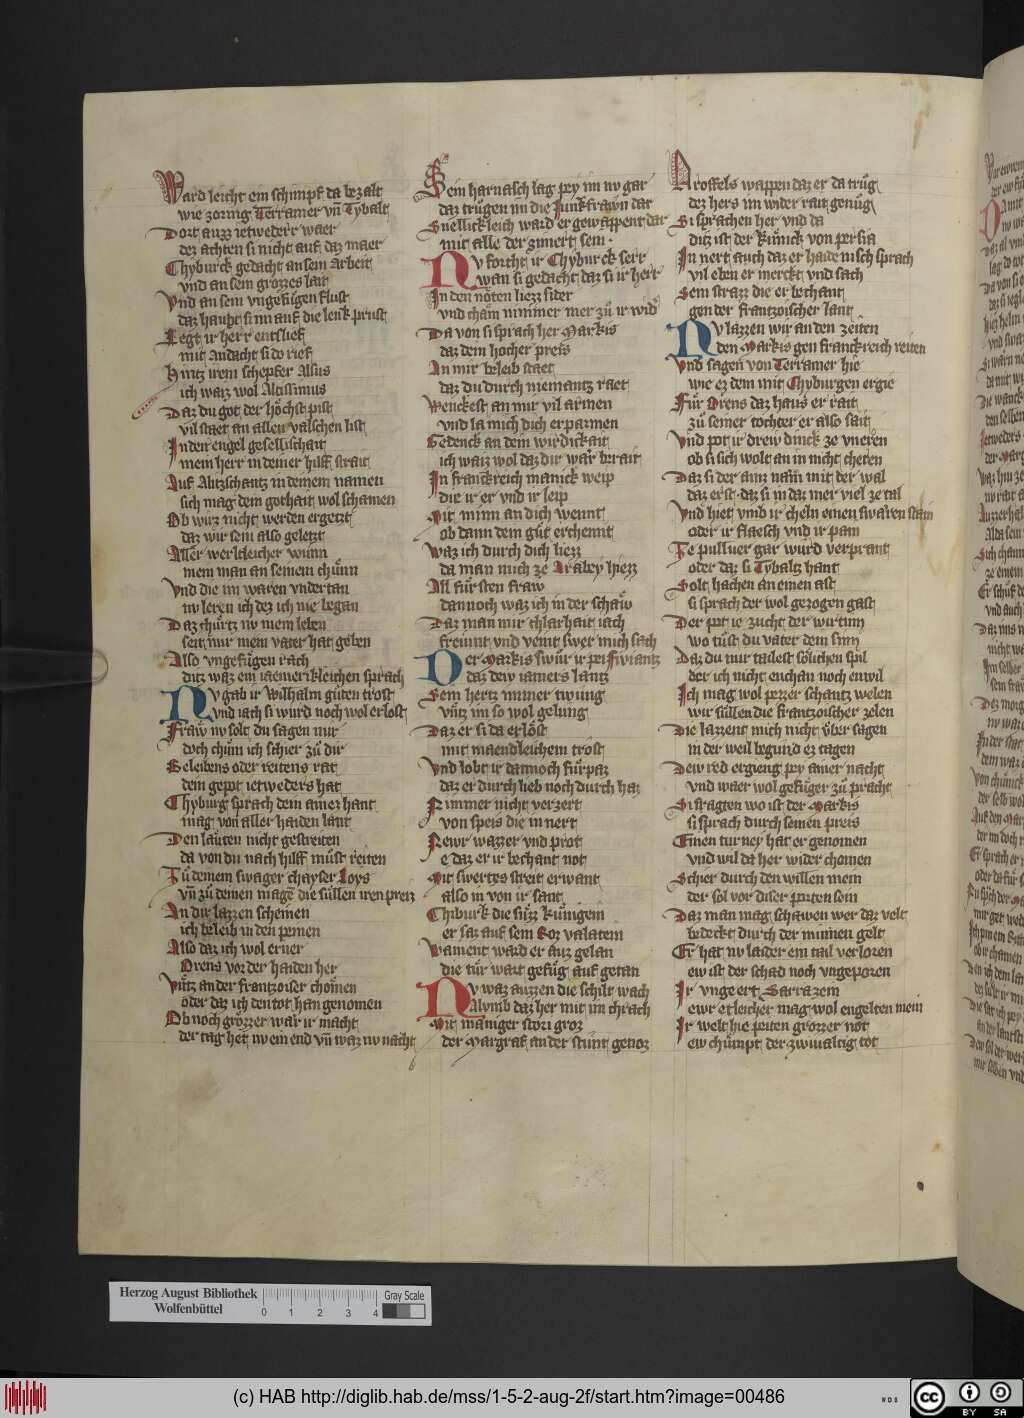 Ward leicht ein schimpf da bezalt
wie zornig Terramer vn̄ Tybalt
Dort auzz ietwederr waer
dez achten si nicht auf daz maer
Chyburck gedacht an sein arbeit
vnd an sein grozzes lait
Vnd an sein vngefůgen flust
daz haubt si im auf die lenk prust
Legt ir herr entslief
mit andacht si do rief
Hintz irem schepfer Alsus
ich waiz wol Altissimus
Daz du got der hőchst pist
vil staet an allen valschen list
In den engel gesellschait
mein herr in deiner hilff strait
Auf Alitzschantz in deinem namen
sich mag dem gothait wol schamen
Ob wirz nicht werden ergetzt
daz wir sein also geletzt
Aller werltleicher wunn
mein man an seinem chůnn
Vnd die im waren vndertan
nv leren ich dez ich nie began
Daz chůrtz nv mein leben
seit mir mein vater hat geben
Also vngefůgen rach
ditz waz ein iaemerikleichen sprach
NV gab ir Wilhalm gůten trost
vnd iach si wurd noch wol erlost
Fraw nv solt du sagen mir
doch chům ich schier zů dir
Beleibens oder reitens rat
dein gepot ietweders hat
Chyburg sprach dein ainez hant
mag von aller haiden lant
Den laůten nicht gestreiten
da von du nach hilff můst reiten
Tů deinem swager chayser Loys
vn̄ zů deinen magē die sůllen iren preiz
An dir lazzen scheinen
ich beleib in den peinen
Also daz ich wol erner
Orens vor der haiden her
Vntz an der frantzoiser chőmen
oder daz ich den tot han genomen
Ob noch grőzzer wär ir macht
der tag het nv ein end vn̄ waz nv nacht
Sein harnasch lag pey im nv gar
daz trůgen im die Junkfrawn dar
Snellickleich ward er gewappent dar
mit alle der zimert sein
NV forcht ir Chyburck serr
wan si gedacht daz si ir herr
In den nőten liezz sider
vnd cham nimmer mer zů ir wider
Da von si sprach her Markis
daz dein hocher preis
An mir beleib staet
daz du durch niemantz raet
Wenckest an mir vil armen
vnd la mich dich erparmen
Gedenck an dein wirdickait
ich waiz wol daz dir war berait
In franckreich manick weip
die ir er vnd ir leip
Mit minn an dich wennt
ob dann dein gůt erchennt
Waz ich durch dich liezz
da man mich ze Arabey hiezz
All fůrsten fraw
dannoch waz ich in der schaw
Daz man mir chlarhait iach
freunt vnd veint swer mich sach
Der Markis swůr ir pei Fivianz
daz dew iamers lantz
Sein hertz immer twung
vntz im so wol gelung
Daz er si da erlőst
mit maendleichem trőst
Vnd lobt ir dannoch fůrpaz
daz er durch lieb noch durch haz
Nimmer nicht verzert
von speis die in nert
Newr wazzer vnd prot
e daz er ir bechant not
Mit swertes streit erwant
also in von ir sant
Chiburk die sůzz kůnigein
er saz auf sein Roz valatein
Wament ward er auz gelan
die tůr wart gefůg auf getan
NV waz auzzen die schilt wach
Halymb daz her mit im chrach
Mit maniger storī groz
der Margraf an der stůnt genoz
Aroffels wappen daz er da trůg
dez hers im wider rait genůg
Si sprachen her vnd da
ditz ist der kůnick von persia
In nert auch daz er haidenisch sprach
vil eben er merckt vnd sach
Sein strazz die er bechant
gen der frantzoischer lant
NV lazzen wir an den zeiten
den Markis gen franckreich reiten
Vnd sagen von Terramer hie
wie ez dem mit Chyburgen ergie
Fůr Orens daz haus er rait
zů seiner tochter er also sait
Vnd pot ir drew dinck ze vneren
ob si sich wolt an in nicht cheren
Daz si der ainz nam mit der wal
daz erst daz si in daz mer viel ze tal
Vnd hiet vmb ir cheln einen swären stain
oder ir flaesch vnd ir pain
Ze pulluer gar wurd verprant
oder daz si Tybaltz hant
Solt hachen an einen ast
si sprach der wol gezogen gast
Der pot ie zucht der wirtinn
wo tůst du vater dein sinn
Daz du mir tailest sőlichen spil
der ich nicht enchan noch enwil
Ich mag wol pezzer schantz welen
wir sůllen die frantzoischer zelen
Die lazzent mich nicht vber sagen
in der weil begund ez tagen
Dew red ergieng pey ainer nacht
vnd waer wol gefůger zů pracht
Si fragten wo ist der Markis
si sprach durch seinen preis
Einen turney hat er genomen
vnd wil da her wider chomen
Schier durch den willen mein
der sol vor diser porten sein
Daz man mag schawen wer daz velt
bedeckt durch der minnen gelt
Er hat nv laider ein tail verlorn
ew ist der schad noch vngeporn
Ir vngeert Sarrazein
ewr etleicher mag wol engelten mein
Ir welt hie peiten grozzer not
ew chůmpt der zwiualtig tot
Herzog August Bibliothek
Wolfenbüttel
0 1 2 3 4
Gray Scale
(c) HAB http://diglib.hab.de/mss/1-5-2-aug-2f/start.htm?image=00486
WDB
cc BY SA